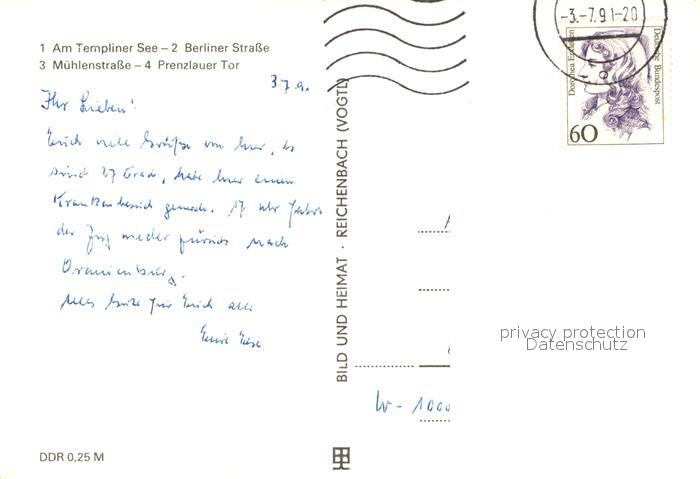 1 Am Templiner See – 2 Berliner Straße
3 Mühlenstraße – 4 Prenzlauer Tor
3.7.9.
Ihr Lieben!
Euch viele Grüße von hier, es
sind 27 Grad, habe hier einen
Krankenbesuch gemacht. 17 Uhr
der Zug wieder zurück nach
Oranienburg.
Alles Gute für Euch alle
Eure
DDR 0,25 M
BILD UND HEIMAT · REICHENBACH (VOGTL)
-3.-7.91-20
Dorothea Erxleben
Deutsche Bundespost
60
W - 1000
privacy protection
Datenschutz